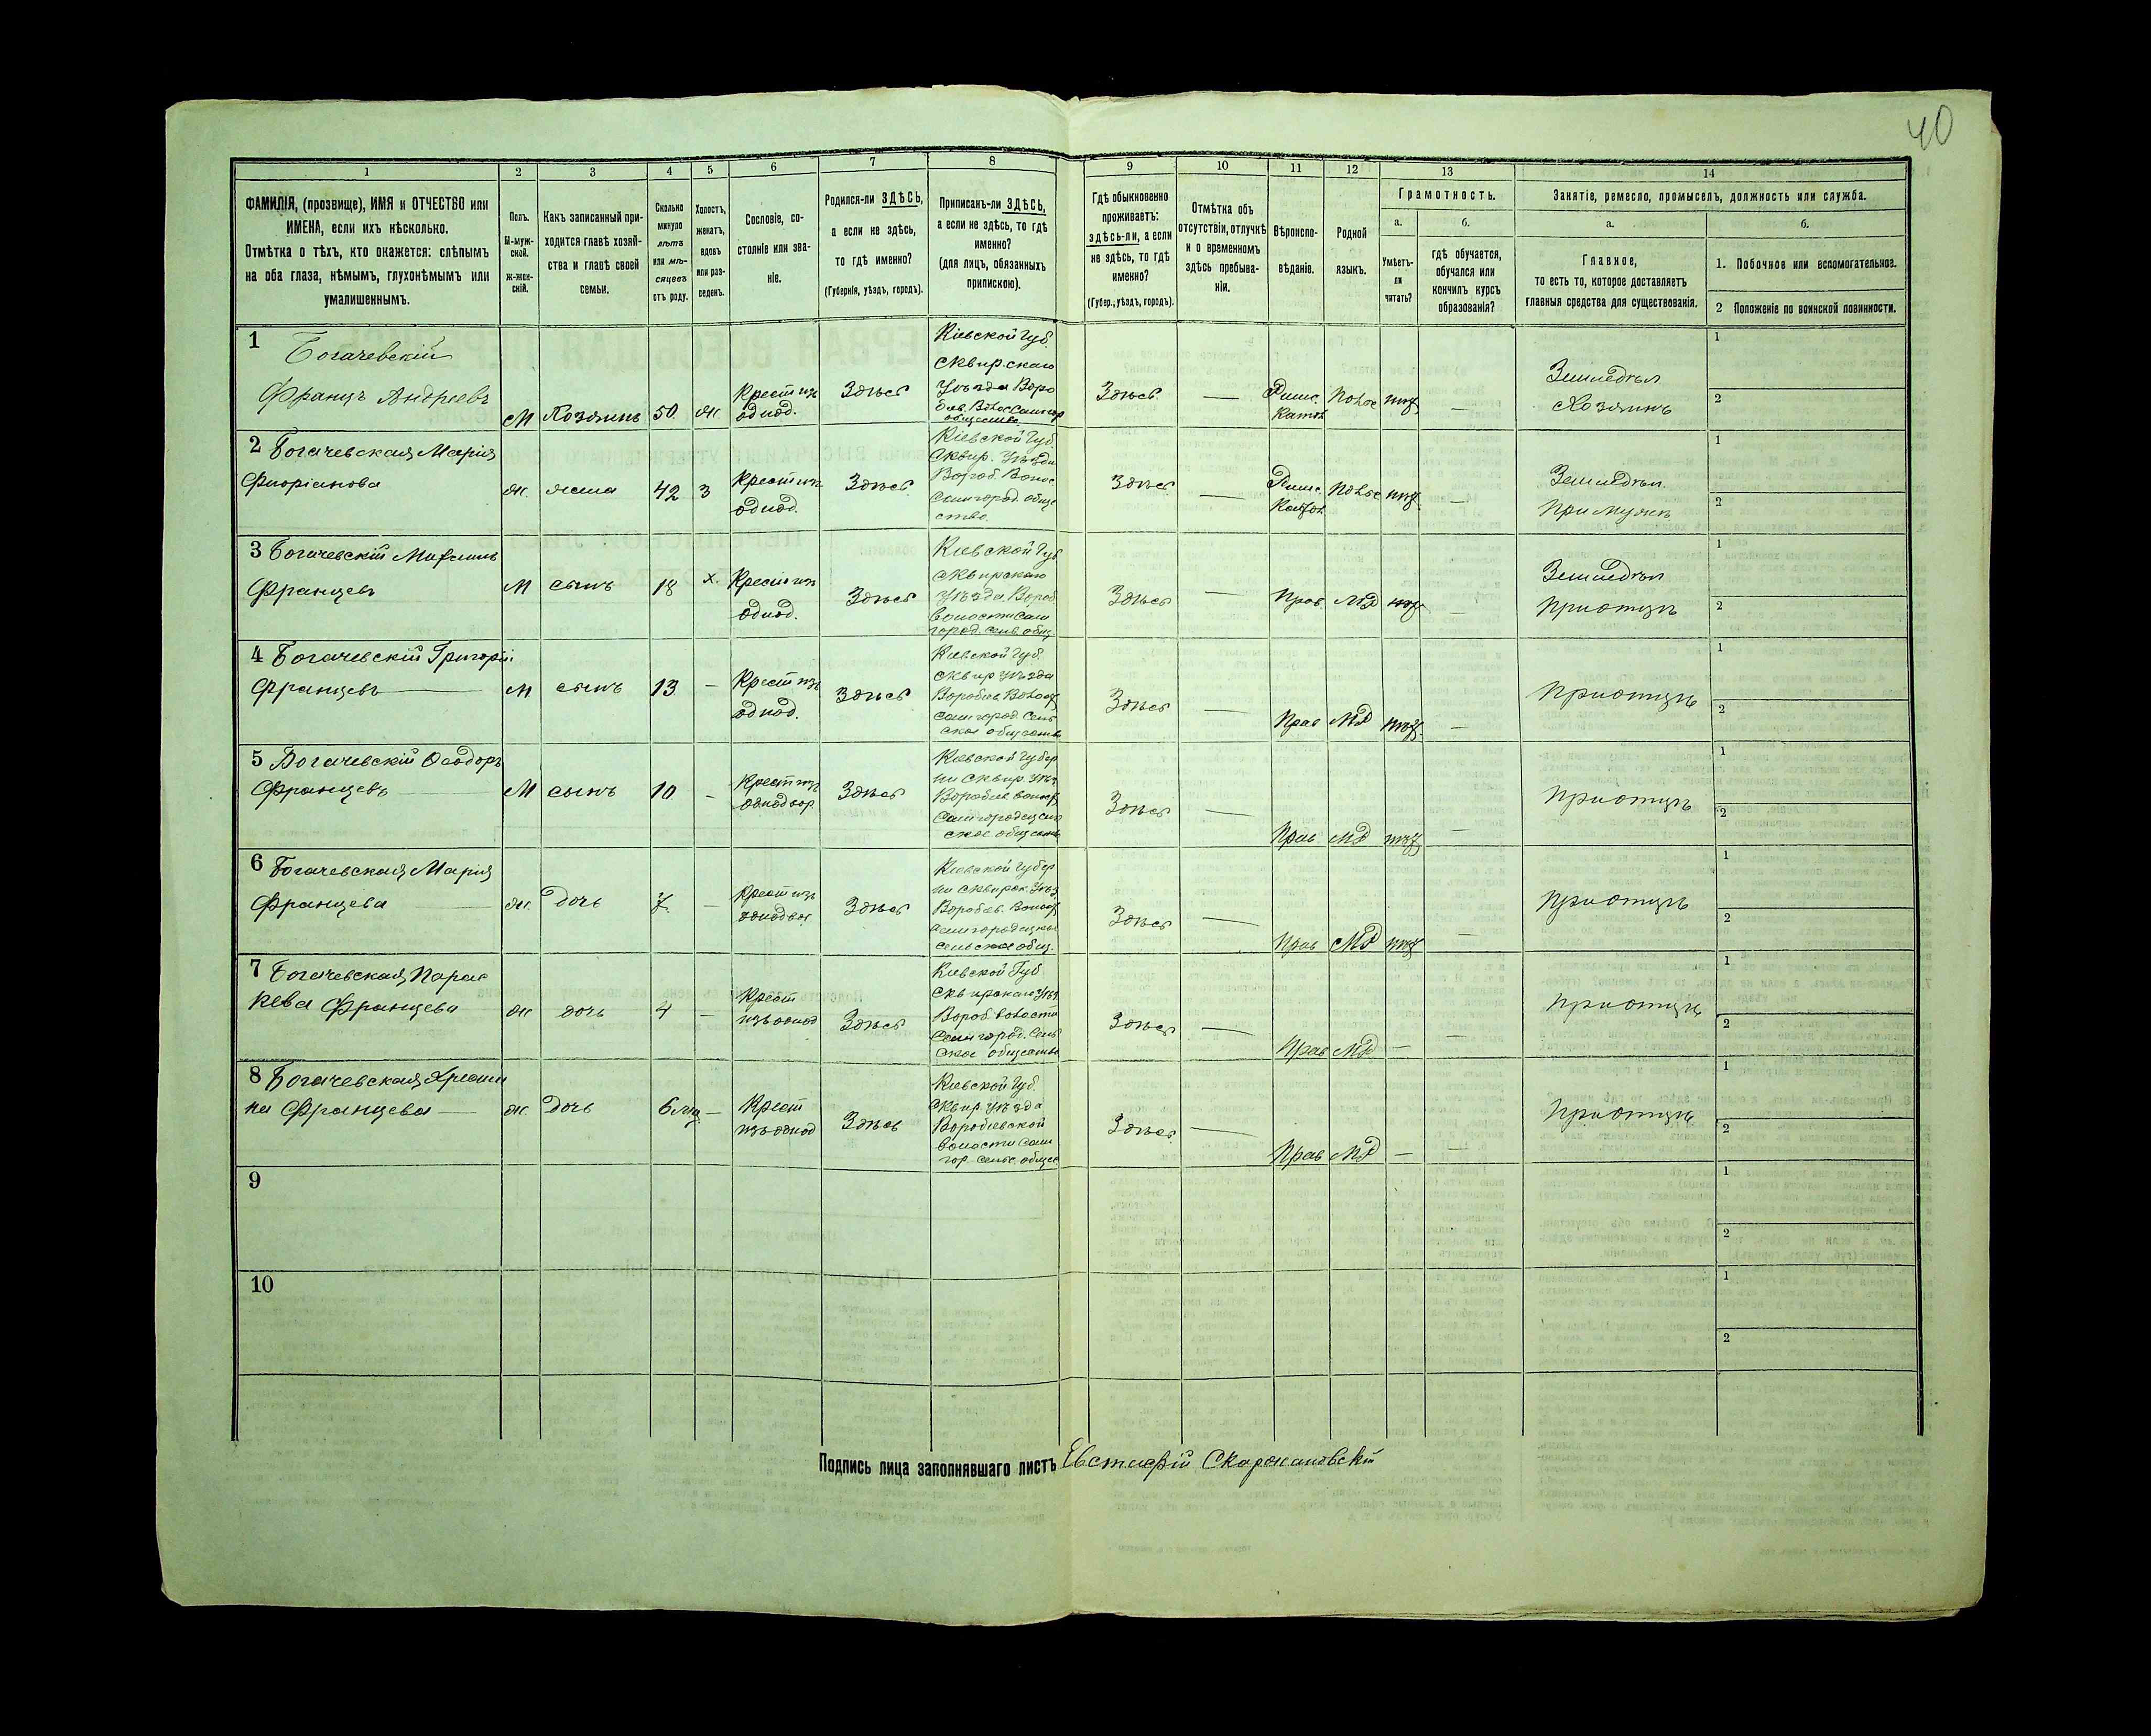 40
1 2 3 4 5 6 7 8 9 10 11 12 13 14
ФАМИЛІЯ, (прозвище), ИМЯ и ОТЧЕСТВО или
ИМЕНА, если ихъ нѣсколько.
Отмѣтка о тѣхъ, кто окажется: слѣпымъ
на оба глаза, нѣмымъ, глухонѣмымъ или
умалишеннымъ.
Полъ.
М-муж-
ской.
Ж-жен-
скій.
Какъ записанный при-
ходится главѣ хозяй-
ства и главѣ своей
семьи.
Сколько
минуло
лѣтъ
или мѣ-
сяцевъ
отъ роду.
Холостъ,
женатъ,
вдовъ
или раз-
веденъ.
Сословіе, со-
стояніе или зва-
ніе.
Родился-ли ЗДѢСЬ,
а если не здѣсь,
то гдѣ именно?
(Губернія, уѣздъ, городъ).
Приписанъ-ли ЗДѢСЬ,
а если не здѣсь, то гдѣ
именно?
(для лицъ, обязанныхъ
припискою).
Гдѣ обыкновенно
проживаетъ:
здѣсь-ли, а если
не здѣсь, то гдѣ
именно?
(Губер., уѣздъ, городъ).
Отмѣтка объ
отсутствіи, отлучкѣ
и о временномъ
здѣсь пребыва-
ніи.
Вѣроиспо-
вѣданіе.
Родной
языкъ.
Грамотность.
а.
Умѣетъ-
ли
читать?
б.
гдѣ обучается,
обучался или
кончилъ курсъ
образованія?
Занятіе, ремесло, промыселъ, должность или служба.
а.
Главное,
то есть то, которое доставляетъ
главныя средства для существованія.
б.
1. Побочное или вспомогательное.
2 Положеніе по воинской повинности.
1
Богачевскій
Францъ Андреевъ
М Хозяинъ 50 ж.
Крест изъ
однод.
Здѣсь
Кіевской Губ.
Сквирскаго
Уѣзда Воро
Здѣсь —
Римс.
Катол.
Польс нѣт —
Земледѣл
Хозяинъ
1
2
2 Богачевская Марія
Флоріанова
ж. жена 42 З
Крест изъ
однод.
Здѣсь
Кіевской Губ
Сквир. Уѣзда
Вороб. Волос
Самгород. обще
ство.
Здѣсь —
Римс.
Катол
Польс нѣт —
Земледѣл
При мужѣ
1
2
3 Богачевскій
Францевъ
М сынъ 18 х.
Крест изъ
однод.
Здѣсь
Кіевской Губ
Сквирскаго
Уѣзда Вороб
волости Сам
город. сельс. общ.
Здѣсь —
Прав МР нѣт —
Земледѣл
При отцѣ
1
2
4 Богачевскій Григорій
Францевъ —
М сынъ 13 —
Крест изъ
однод.
Здѣсь
Кіевской Губ.
Сквир уѣзда
Воробіев Волост
Самгород. Сель
ское общество
Здѣсь —
Прав МР нѣт. —
При отцѣ
1
2
5 Богачевскій Ѳеодоръ
Францевъ —
М сынъ 10 —
Крест изъ
однодвор
Здѣсь
Кіевской Губер
ни Сквир. Уѣз
Воробіев волост
ское общество
Здѣсь —
Прав МР нѣт —
При отцѣ
1
2
6 Богачевская Марія
Францева —
ж. дочь 7. —
Крест изъ
однодвор
Здѣсь
Кіевской Губер
ни Сквирск. Уѣз
Воробіев. Волост
сельское общ.
Здѣсь —
Прав МР нѣт —
При отцѣ
1
2
7 Богачевская Парас
кева Францева
ж дочь 4 —
Крест
изъ однод
Здѣсь
Кіевской Губ
Сквирскаго Уѣз
Вороб волости
Самгород. Сель
ское общество
Здѣсь —
Прав МР — —
При отцѣ
1
2
8 Богачевская Хрести
на Францева —
ж. Дочь 6 мѣ —
Крест
изъ однод
Здѣсь
Кіевской Губ.
Сквир. уѣзда
Воробіевской
волости Сам
гор сельс. общес
Здѣсь —
Прав МР — —
При отцѣ
1
2
9
1
2
10
1
2
Подпись лица заполнявшаго листъ Евстафій Скаржановскій